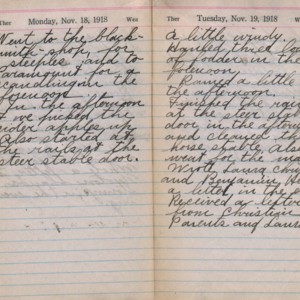 Ther Monday, Nov. 18, 1918 Wea
Went to the black-
smith shop, for
steeples and to
Paramount for a
in the
forenoon
In the afternoon
we
cider apples up.
Also started
the rails at the
steer stable door.
Ther Tuesday, Nov. 19, 1918 Wea
A little windy.
Hauled three
of fodder in the
forenoon
Rained a little
the afternoon.
Finished the
at the steer
door in the
and cleaned
horse stable, Also
went for the
Wrote Laura
and Benjamin
a letter in the
Received a letter
from Christian
Parents and